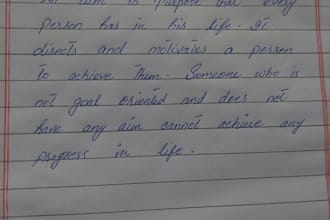 An aim is purpose that every
person has in his life. It
directs and motivates a person
to achieve them. Someone who is
not goal oriented and does not
have any aim cannot achieve any
progress in life.